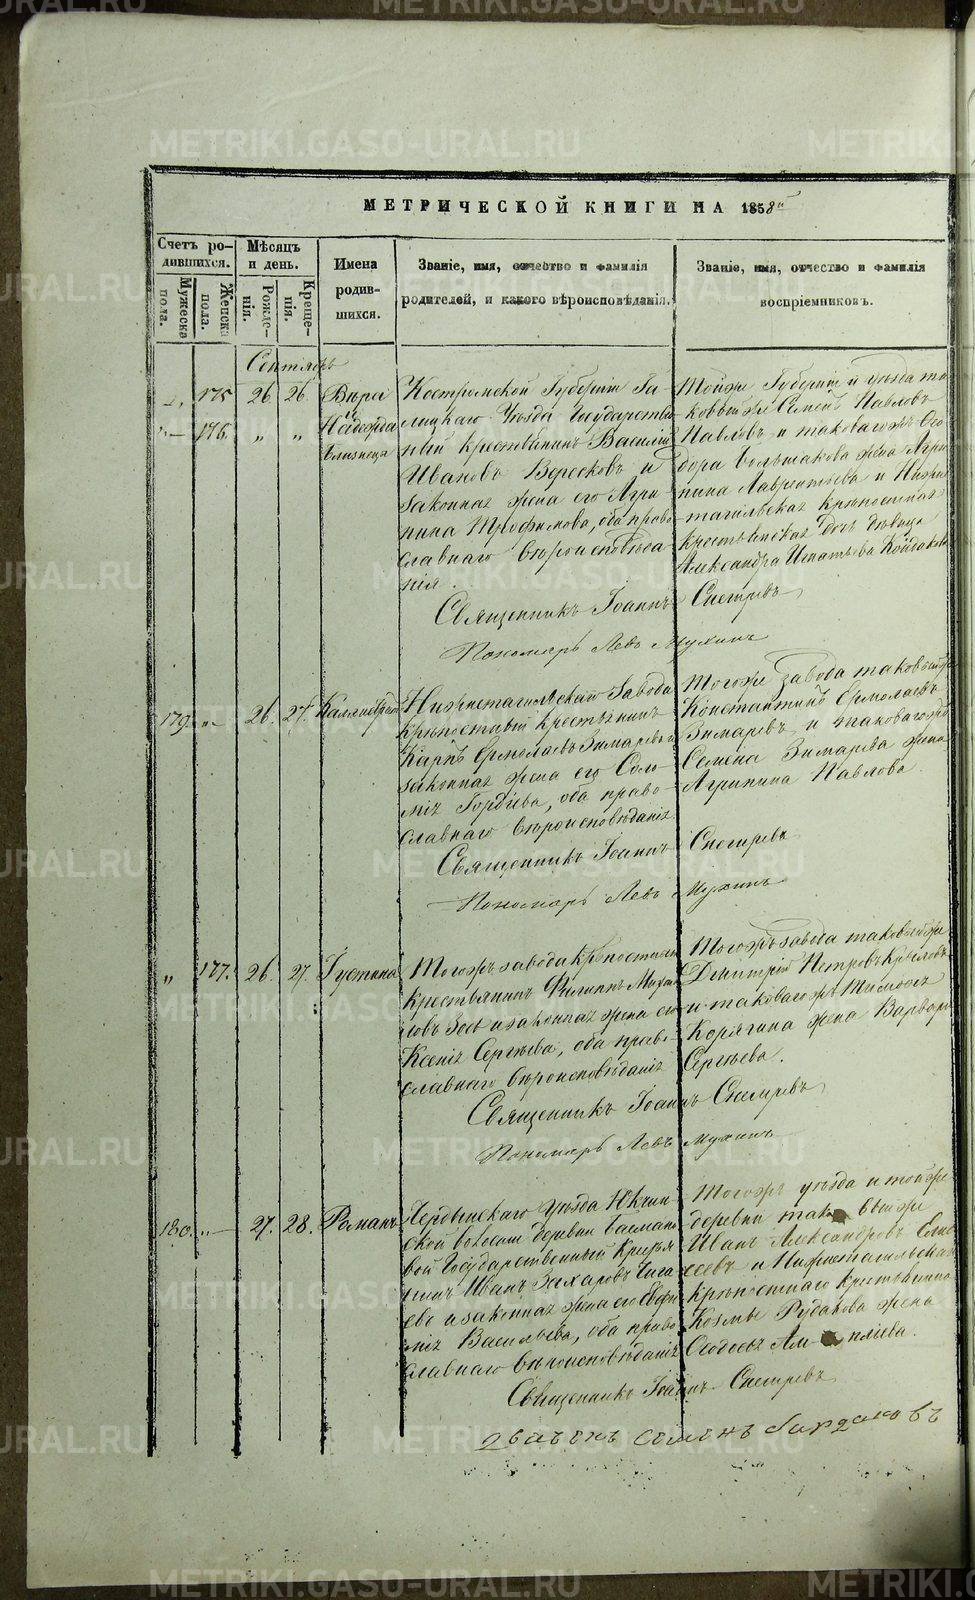 МЕТРИЧЕСКОЙ КНИГИ НА 1858й
Счетъ ро-
дившихся.
Мужеска
пола.
Женска
пола.
Мѣсяцъ
и день.
Рожде-
нія.
Креще-
нія.
Имена
родив-
шихся.
Званіе, имя, отчество и фамилія
родителей, и какого вѣроисповѣданія.
Званіе, имя, отчество и фамилія
воспріемниковъ.
Сентябрь
175 26 26 Вѣра
176 " " Надежда
близнеца
Костромской Губерніи Га-
лицкаго Уѣзда Государствен-
ный крестьянинъ Василій
Ивановъ Вересковъ и
законная жена его Агри-
пина Трофимова, оба право
славнаго вѣроисповѣда-
нія.
Тойже Губерніи и уѣзда та
ковыйже Семенъ Павловъ
Павловъ и таковагожъ Ѳео
дора Большакова жена Агри
пина Лаврентьева и Нижне
тагильская крѣпостная
крестьянская дочь дѣвица
Александра Игнатьева
Священникъ Іоаннъ Снегиревъ
Пономарь Левъ Мухинъ
179 " 26. 27.
Нижнетагильскаго Завода
крѣпостный крестьянинъ
Карпъ Ермолаевъ Зимаревъ и
законная жена его Соло-
мія Гордѣева, оба право-
славнаго вѣроисповѣданія
Тогоже Завода таковыйже
Константинъ Ермолаевъ
Зимаревъ и таковагожъ
Семена Зимарева жена
Агрипина Павлова.
Священникъ Іоаннъ Снегиревъ
Пономарь Левъ Мухинъ
" 177. 26. 27. Іустина
Тогожъ завода крѣпостный
крестьянинъ Филиппъ Михай
ловъ и законная жена его
Ксенія Сергѣева, оба право-
славнаго вѣроисповѣданія
Тогожъ завода таковыйже
Дмитрій Петровъ Крыловъ
и таковагожъ Тимоѳея
Корягина жена Варвара
Сергѣева.
Священникъ Іоаннъ Снегиревъ
Пономарь Левъ Мухинъ
180. " 27. 28. Романъ
Чердынскаго уѣзда
ской волости деревни
вой Государственный Крестья
нинъ Иванъ Захаровъ Чига
евъ и законная жена его Евфи
мія Васильева, оба право
славнаго вѣроисповѣданія
Тогожъ уѣзда и тойже
деревни таковыйже
Иванъ Александровъ Ели
сѣевъ и Нижнетагильскаго
крѣпостнаго крестьянина
Козмы Рудакова жена
Ѳеодосья
Священникъ Іоаннъ Снегиревъ
Дьяченъ Семенъ Бардаковъ
METRIKI.GASO-URAL.RU